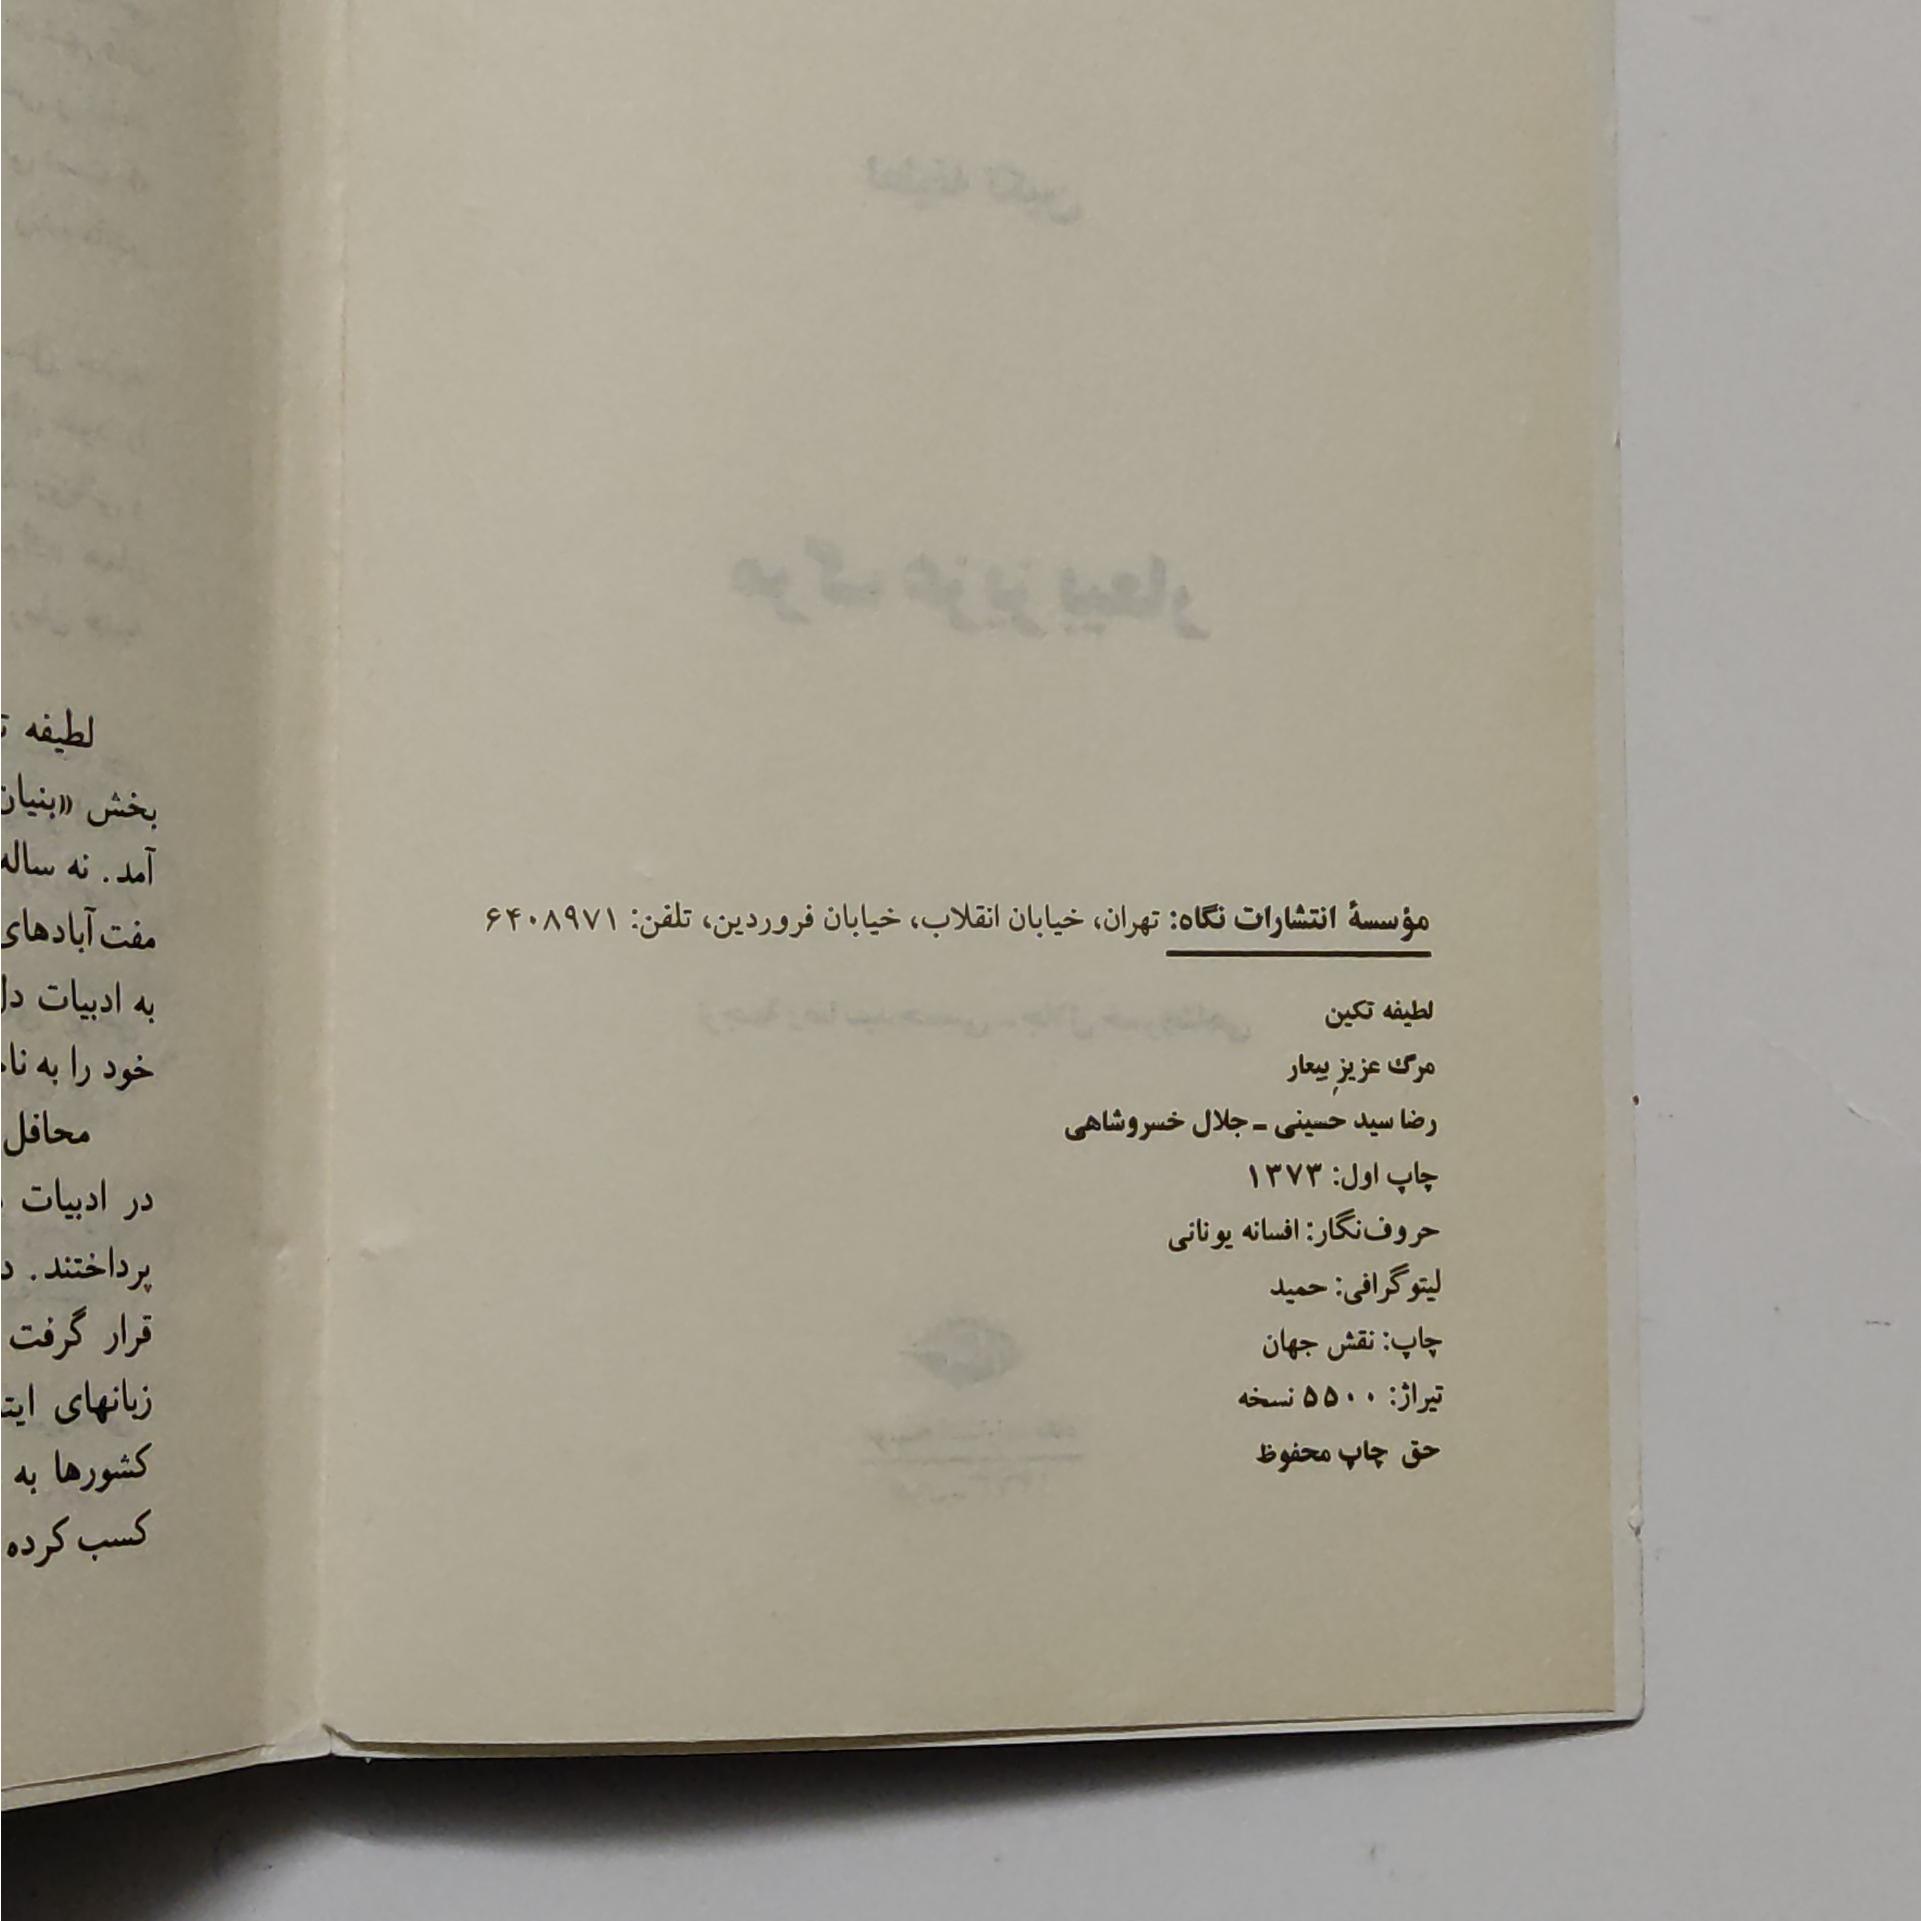 مؤسسهٔ انتشارات نگاه: تهران، خیابان انقلاب، خیابان فروردین، تلفن: ۶۴۰۸۹۷۱
لطیفه تکین
مرگ عزیزِ بیعار
رضا سید حسینی ـ جلال خسروشاهی
چاپ اول: ۱۳۷۳
حروف‌نگار: افسانه یونانی
لیتوگرافی: حمید
چاپ: نقش جهان
تیراژ: ۵۵۰۰ نسخه
حق چاپ محفوظ
لطیفه
بخش «بنیان
آمد. نه ساله
مفت‌آبادهای
به ادبیات
خود را به
محافل
در ادبیات
پرداختند.
قرار گرفت
زبانهای
کشورها به
کسب کرده